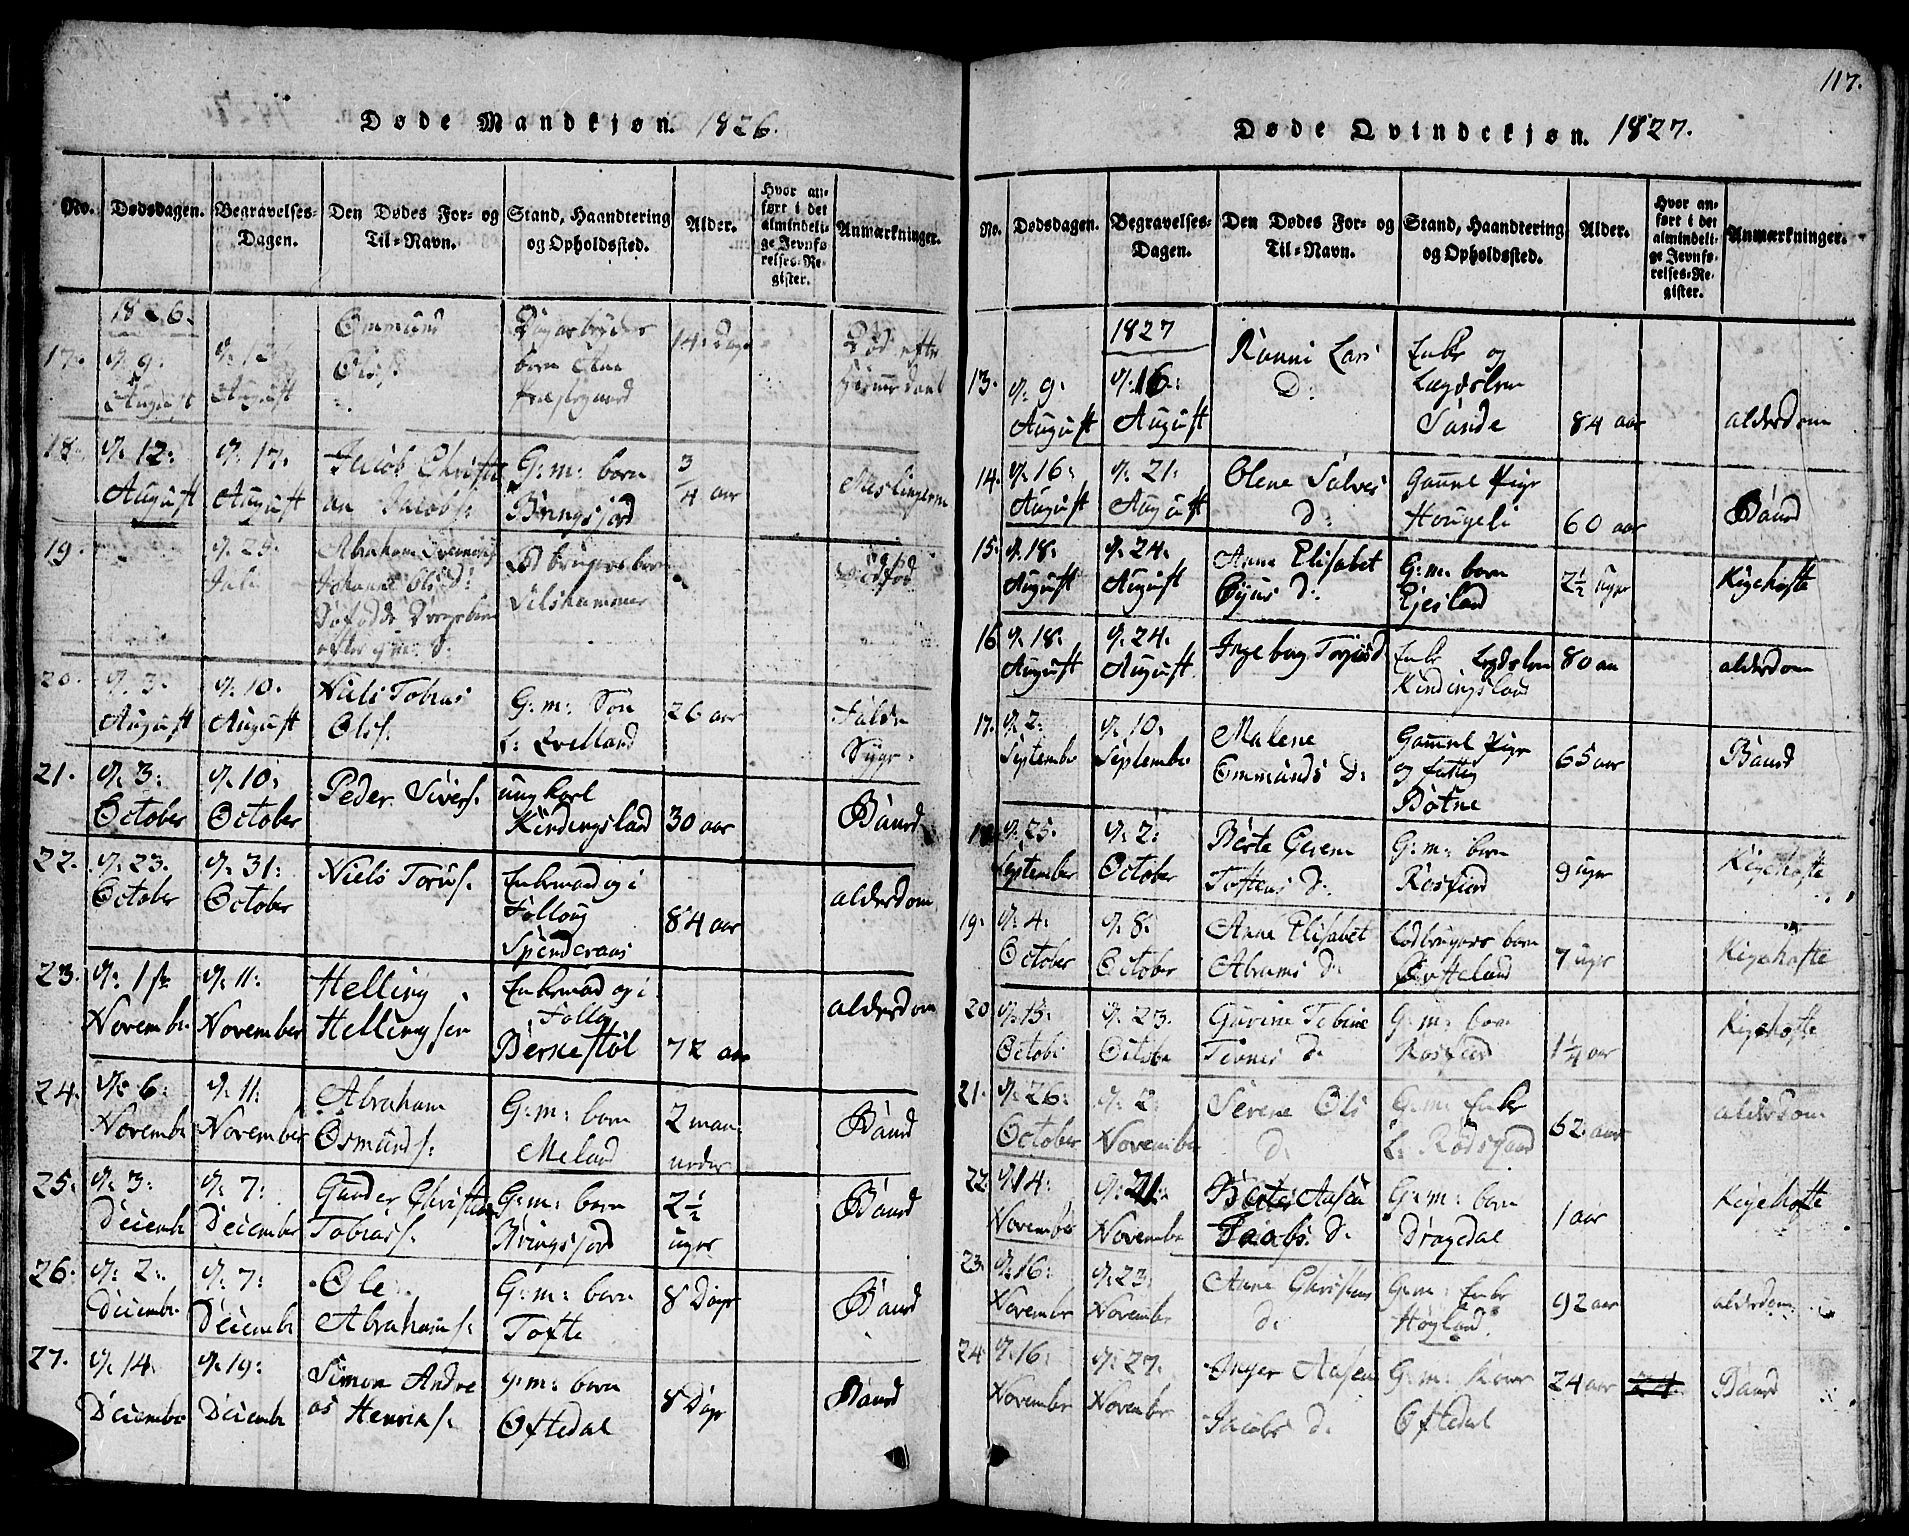 117.
Døde Mandkjøn. 1826.
No. Dødsdagen. Begravelses-Dagen. Den Dødes For- og Til-Navn. Stand, Haandtering og Opholdssted. Alder. Hvor anført i det almindelige Jevnførelses-Register. Anmærkninger.
1826.
17. d. 9. August
d. 12 August
Ommund Ols:
born
14 Dage
Død efter
18 d. 12: August
d. 17. August
Jacob Christian Jacobs:
G: m: born Bringsjord
3/4 aar
Meslingerne
19.
d. 25. Juli
Abraham
Dødfød
20. d. 3. August
d. 10. August
Niels Tobias Ols:
G: m: Søn L: Qvelland
26 aar
Falde Syge.
21. d. 3: October
d. 10: October
Peder Sivers:
ung karl Kindingsland
30 aar
Baard
22. d. 23. October
d. 31: October
Niels Torus:
Enkemand og i Folloug Spinderaas
84 aar
alderdom
23. d. 1ste November
d. 11: November
Helling Hellingsen
Enkemand og i Follog Bernestøl
72 aar
alderdom
24. d. 6: November
d. 11: November
Abraham Osmunds:
G: m: born Meland
2 maaneder
Baard
25. d. 3: December
d. 7: December
Gunder Christian Tobias:
G: m: born Bringsjord
2½ uger
Baard
26: d. 2: December
d. 7: December
Ole Abrahams:
G: m: born Tofte
8 Dage
Baard
27. d. 14: December
d. 19: December
Simon Andreas Henriks:
G: m: born Oftedal
8 Dage
Baard
Døde Qvindekjøn. 1827.
No. Dødsdagen. Begravelses-Dagen. Den Dødes For- og Til-Navn. Stand, Haandtering og Opholdssted. Alder. Hvor anført i det almindelige Jevnførelses-Register. Anmærkninger.
1827
13. d. 9. August
d. 16: August
Ranni Lars D:
Enke og Lægdslem Sande
84 aar
alderdom
14. d. 16: August
d. 21: August
Olene Salves D:
Gammel Pige Hougeli
60 aar
Baard
15. d. 18. August
d. 24. August
Anne Elisabet D:
G: m: born Egeland
2½ uger
Kigehoste
16 d. 18: August
d. 24. August
Ingeborg Torjus D
Enke Legdslem Kindingsland
80 aar
alderdom
17. d. 2. September
d. 10. September
Malene Ommunds D:
Gammel Pige og fattig Bøtne
65 aar
Baard
18 d. 25. September
d. 2: October
Berte Gerene Tostens D:
G: m: born Rosfjord
9 uger
Kigehoste
19. d. 4: October
d. 8. October
Anne Elisabet Abrams D:
born
7 uger
Kigehoste
20 d. 15: October
d. 23. October
Gurine Tobine D:
G: m: born Rosfjord
1¼ aar
Kigehoste
21. d. 26: October
d. 2: November
Serene Ols D:
G: m: Enke L: Rødsgaard
62 aar
alderdom
22. d. 14: November
d. 21: November
Berte Aasen Jacobs D:
G: m: born Dragedal
1 aar
Kigehoste
23. d. 16: November
d. 23: November
Anne Christens D:
G: m: Enke Høyland.
92 aar
alderdom
24 d. 16: November
d. 27: November
Inger Aasen Jacobs D:
G: m: Kone Oftedal
24 aar
24.
Baard